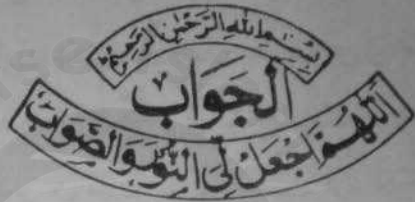 بِسْمِ اللهِ الرَّحْمٰنِ الرَّحِيْمِ
الْجَوَاب
اَللّٰهُمَّ اجْعَلْ لِّی النُّوْرَ وَالصَّوَابَ